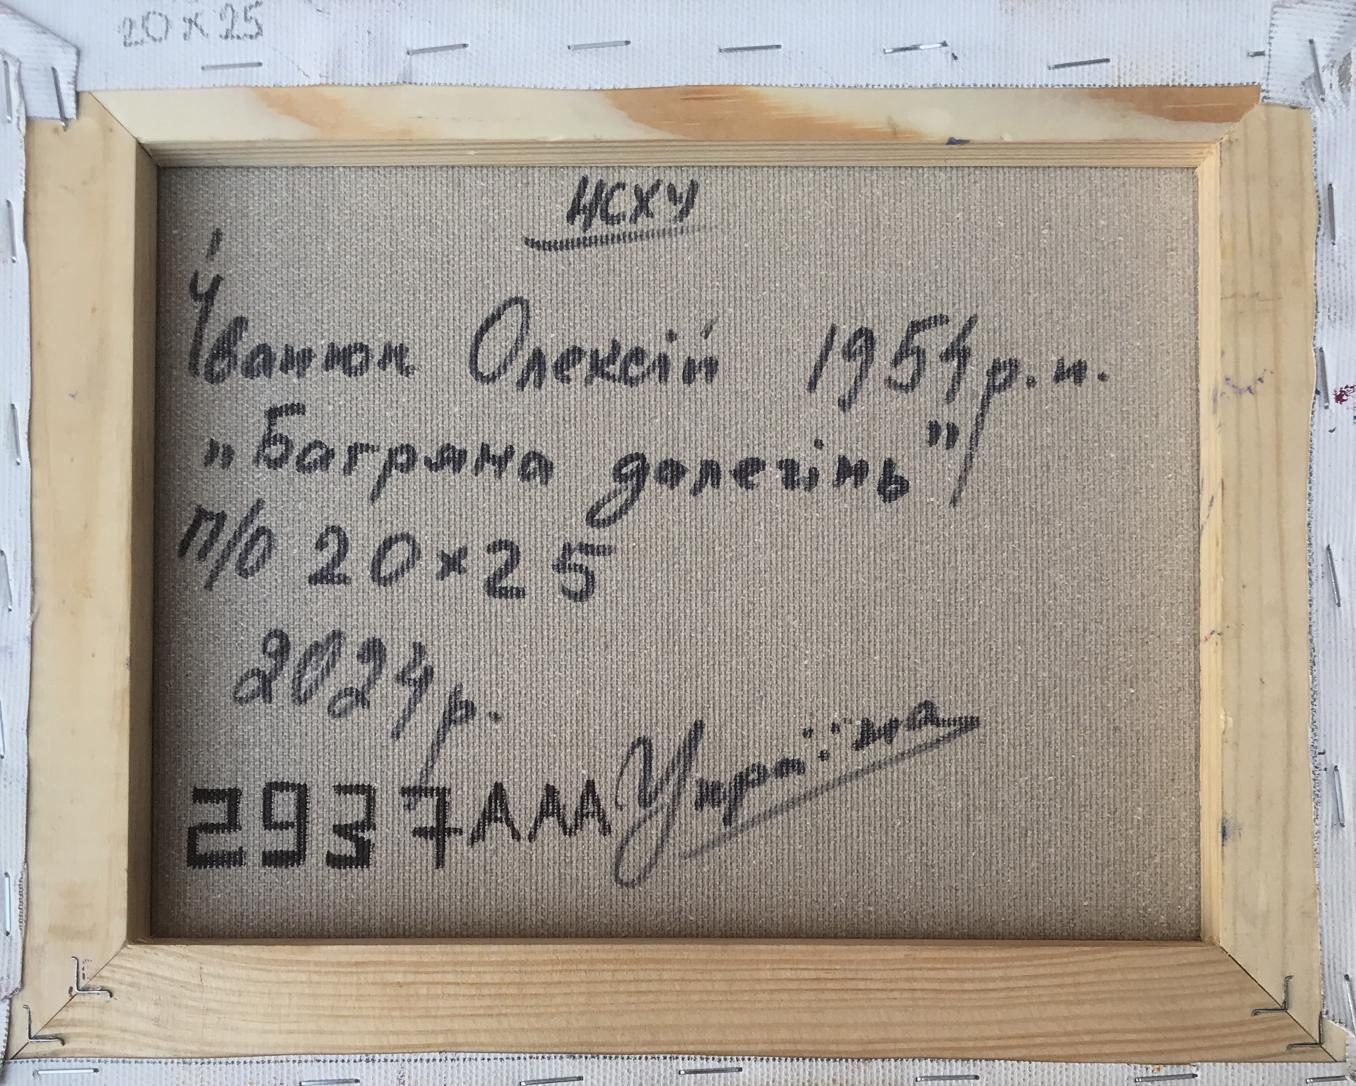 20 x 25
НСХУ
Іванюк Олексій 1954 р.н.
„Багряна далечінь"
п/о 20×25
2024 р.
2937AAA Україна